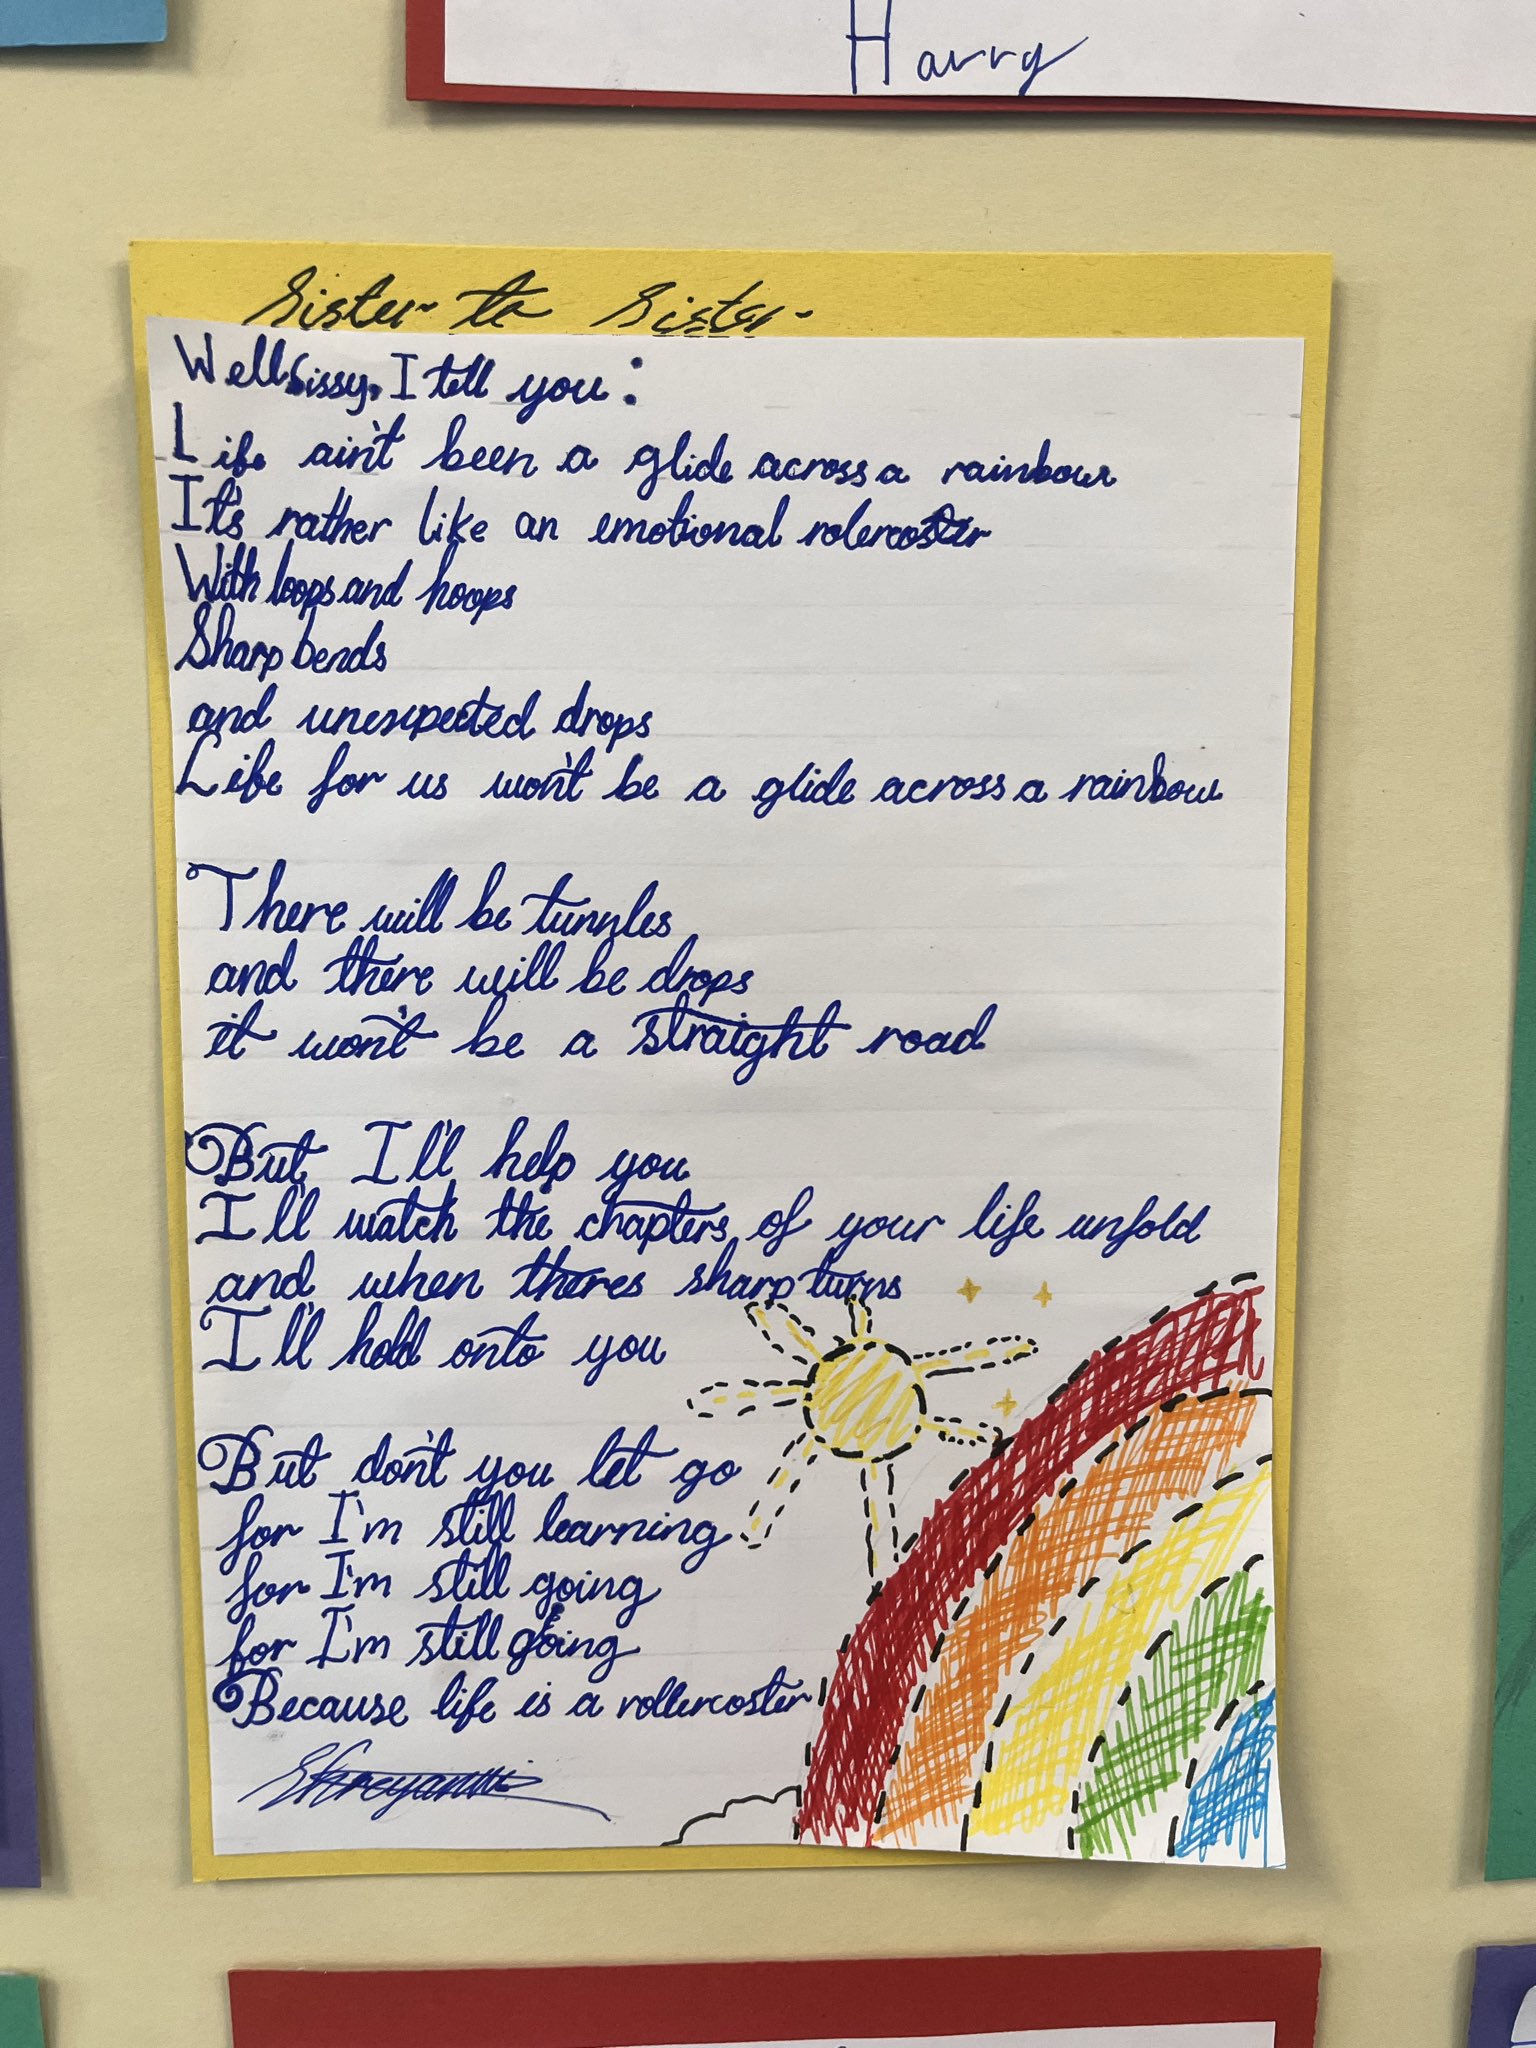 Harry
Sister to Sister
Well sissy, I tell you:
Life ain't been a glide across a rainbow
It's rather like an emotional rolercoster
With loops and hoops
Sharp bends
and unexpected drops
Life for us won't be a glide across a rainbow
There will be tunnles
and there will be drops
it won't be a straight road
But I'll help you
I'll watch the chapters of your life unfold
and when theres sharp turns
I'll hold onto you
But don't you let go
for I'm still learning
for I'm still going
for I'm still going
Because life is a rollercoster